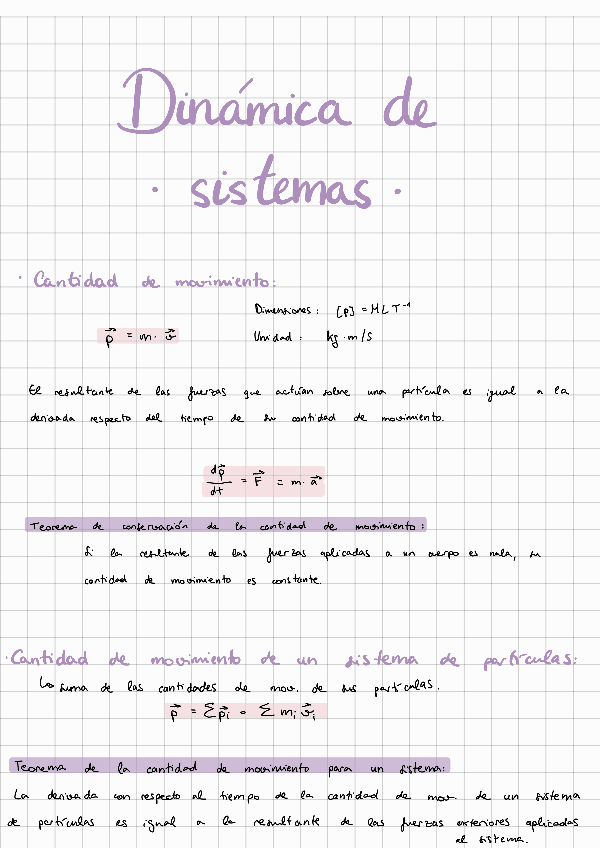 Dinámica de
· sistemas ·
· Cantidad de movimiento:
Dimensiones: [p] = MLT⁻¹
p⃗ = m · v⃗
Unidad: kg · m/s
El resultante de las fuerzas que actúan sobre una partícula es igual a la
derivada respecto del tiempo de su cantidad de movimiento.
dp⃗/dt = F⃗ = m · a⃗
Teorema de conservación de la cantidad de movimiento:
Si la resultante de las fuerzas aplicadas a un cuerpo es nula, su
cantidad de movimiento es constante.
· Cantidad de movimiento de un sistema de partículas:
↳ suma de las cantidades de mov. de sus partículas.
p⃗ = Σp⃗ᵢ = Σ mᵢ v⃗ᵢ
Teorema de la cantidad de movimiento para un sistema:
La derivada con respecto al tiempo de la cantidad de mov de un sistema
de partículas es igual a la resultante de las fuerzas exteriores aplicadas
al sistema.